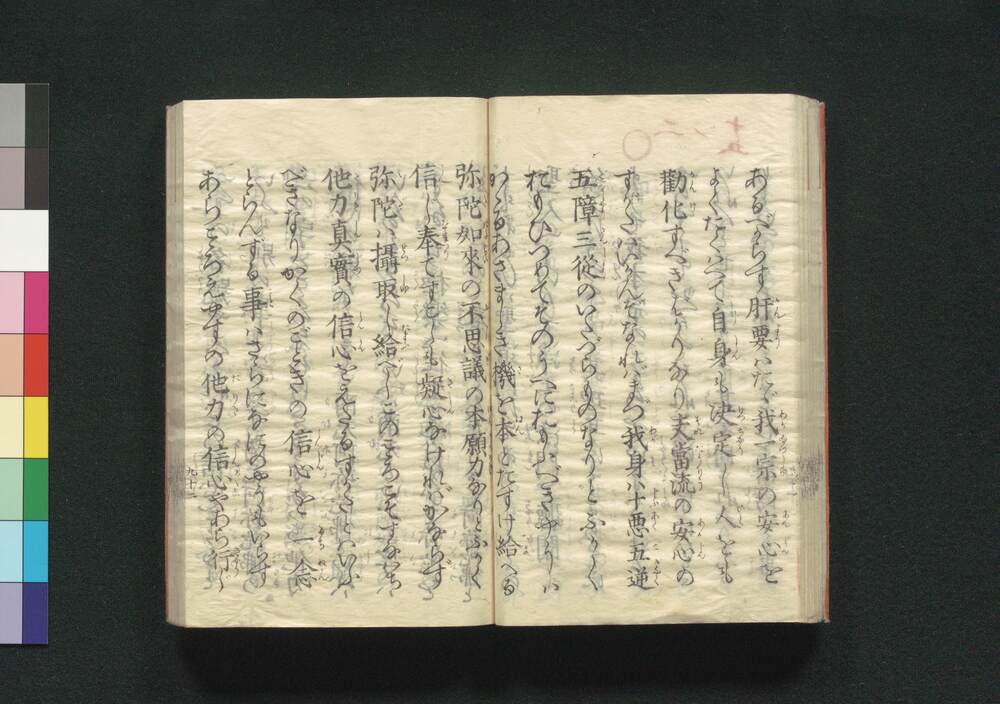 十五 二ノ 〇
あるべからず肝要はたゞ我一宗の安心を
よくたくはへて自身も決定し人をも
勸化すべきばかりなり夫當流の安心の
すがたはいかんぞなればまづ我身は十悪五逆
五障三従のいたづらものなりとふかく
おもひつめてそのうへにおもふべきやうは
かゝるあさましき機を本とたすけ給へる
弥陀如來の不思議の本願力なりとふかく
信じ奉てすこしも疑心なければかならず
弥陀は攝取し給べしこのこゝろこそすなはち
他力真實の信心をえたるすがたとはいふ
べきなりかくのごときの信心を一念
とらんずる事はさらになにのやうもいらず
あらこゝろえやすの他力の信心やあら行じ